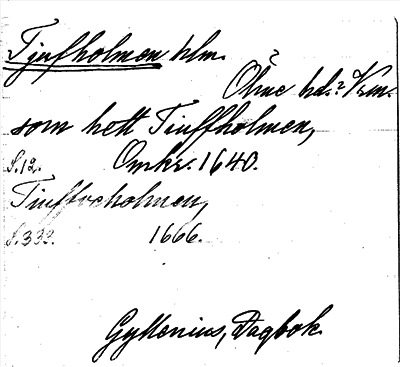 Tjufholmen hlm.
Ölme hd.? Vrm.
som hett Tiuffholmen,
S.12. Omkr. 1640.
Tiuffweholmen,
S.333. 1666.
Gyllenius, Dagbok.